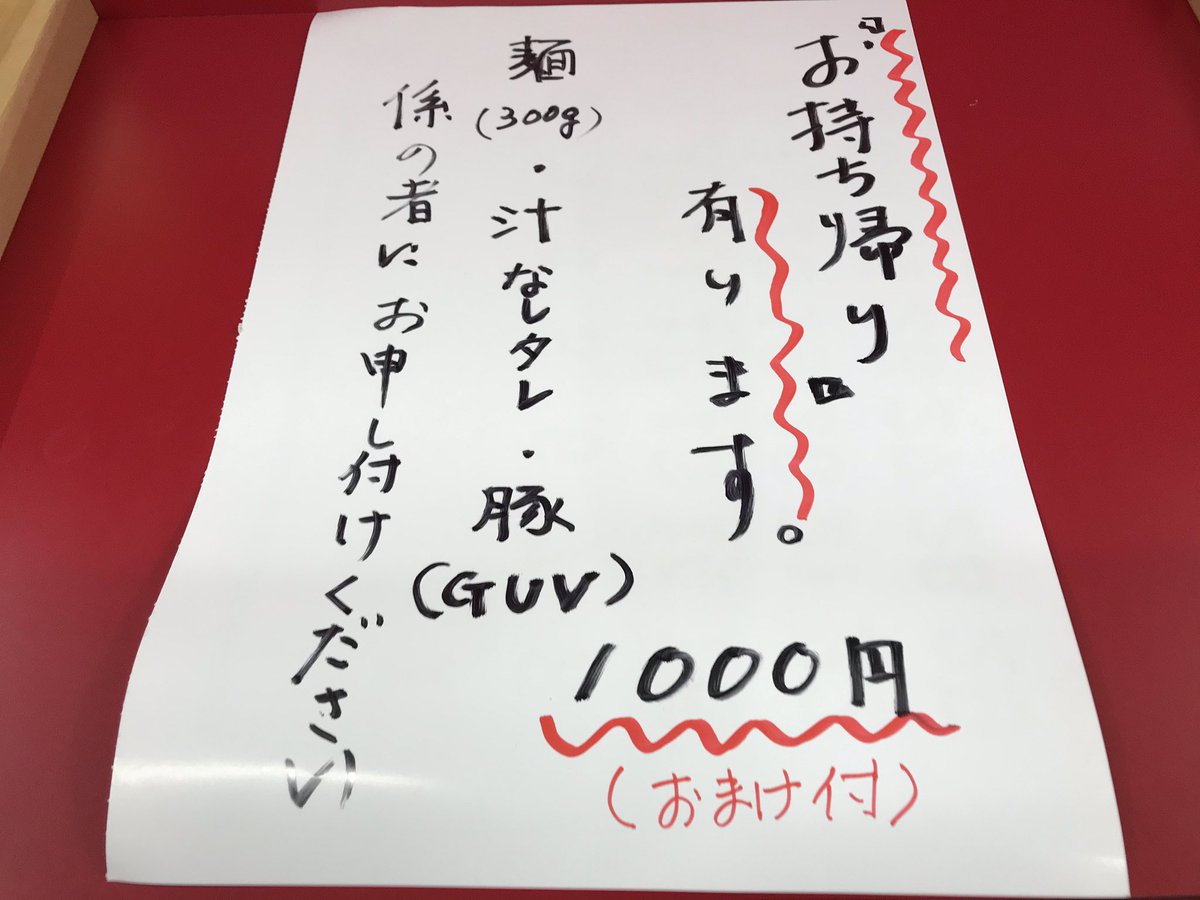 『お持ち帰り』
有ります。
麺(300g)・汁なしタレ・豚(GUV)
係の者にお申し付けください
1000円
(おまけ付)